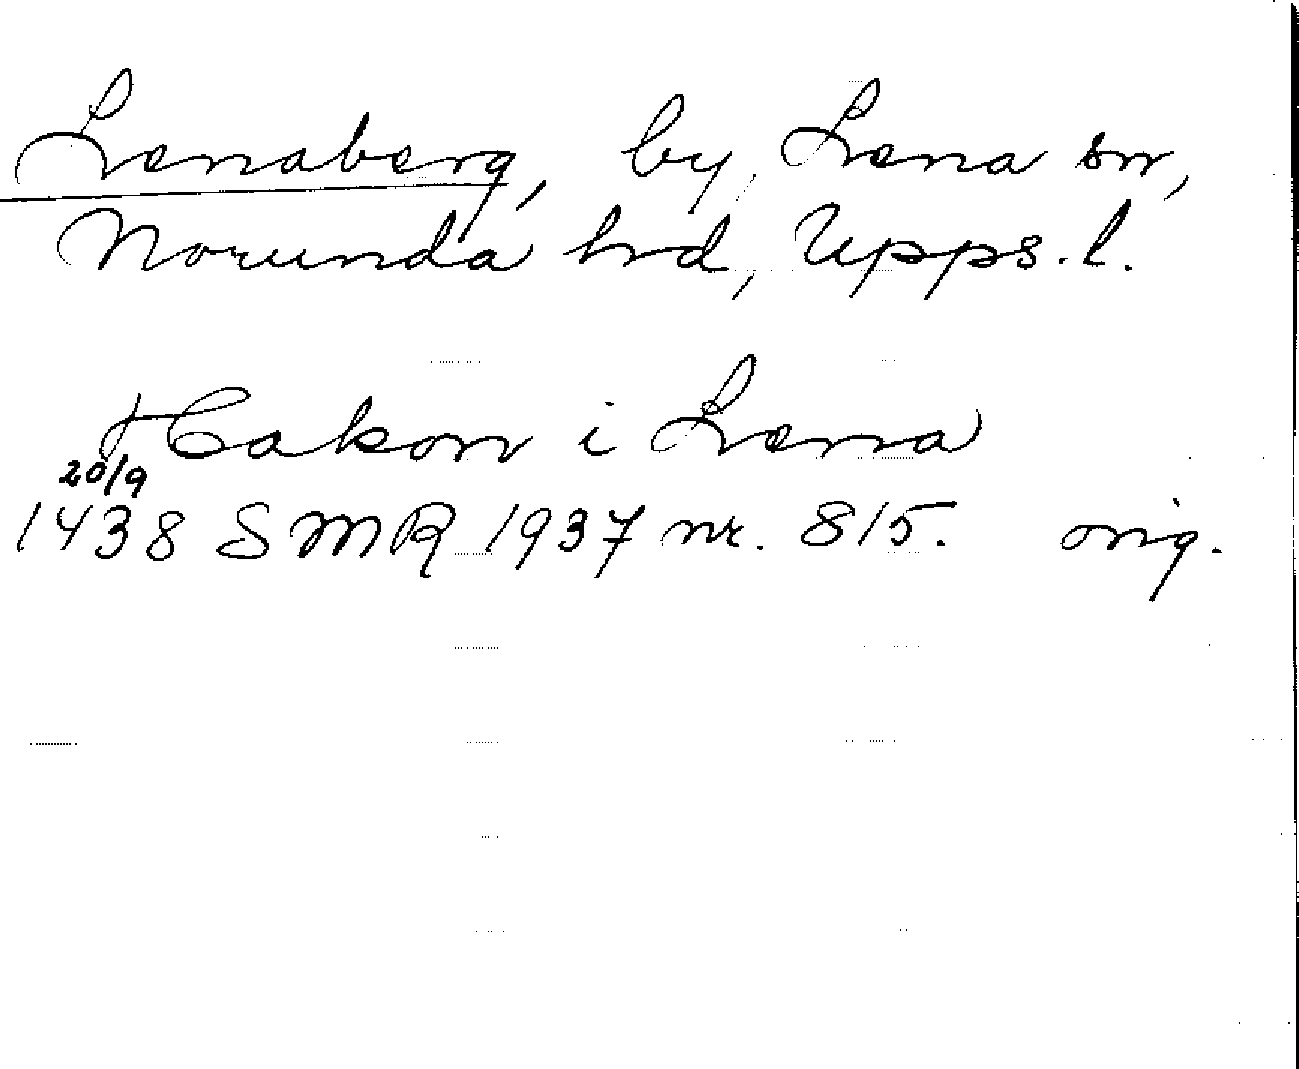 Lenaberg, by, Lena sn,
Norunda hd, Upps. l.
Hakon i Lena
20/9
1438 SMR 1937 nr. 815. orig.